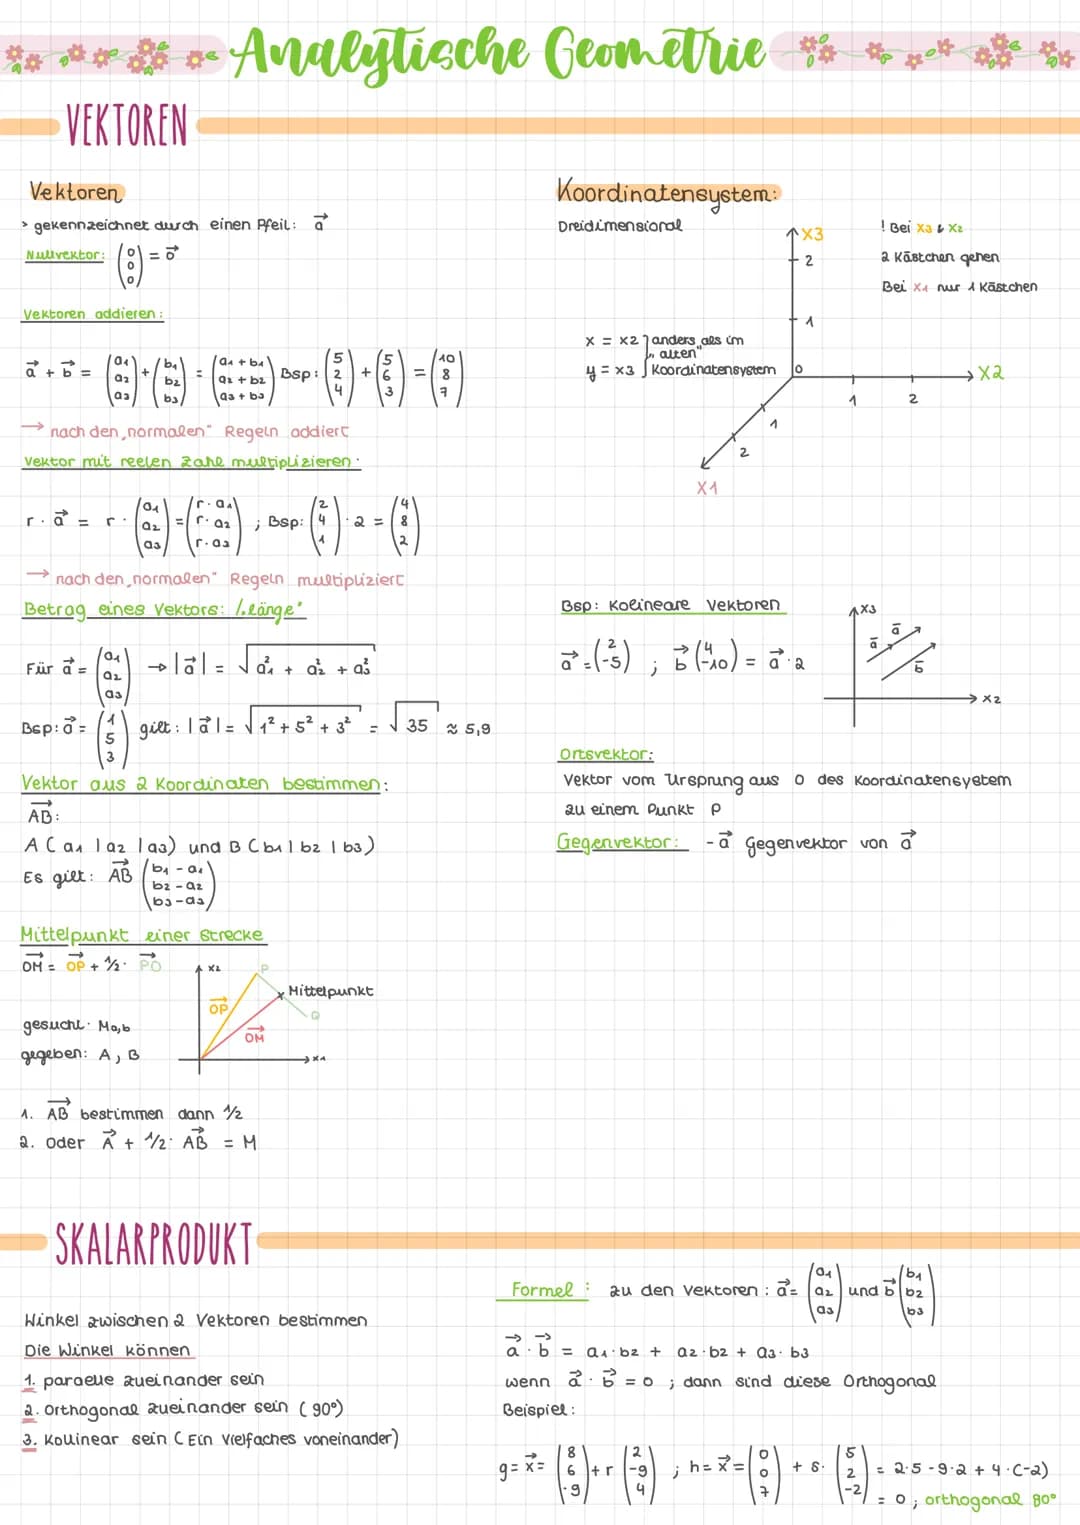 Analytische Geometrie
VEKTOREN
Vektoren
> gekennzeichnet durch einen Pfeil: a⃗
Nullvektor: (0 0 0) = o⃗
Vektoren addieren:
a⃗ + b⃗ = (a1 a2 a3) + (b1 b2 b3) = (a1 + b1 a2 + b2 a3 + b3) Bsp: (5 2 4) + (5 6 3) = (10 8 7)
→ nach den „normalen" Regeln addiert
Vektor mit reelen Zahl multiplizieren:
r · a⃗ = r · (a1 a2 a3) = (r · a1 r · a2 r · a3) ; Bsp: (2 4 1) · 2 = (4 8 2)
→ nach den „normalen" Regeln multipliziert
Betrag eines Vektors: /„länge"
Für a⃗ = (a1 a2 a3) → |a⃗| = √a1² + a2² + a3²
Bsp: a⃗ = (1 5 3) gilt: |a⃗| = √1² + 5² + 3² = √35 ≈ 5,9
Vektor aus 2 Koordinaten bestimmen:
AB⃗:
A (a1 | a2 | a3) und B (b1 | b2 | b3)
Es gilt: AB⃗ (b1 - a1 b2 - a2 b3 - a3)
Mittelpunkt einer Strecke
OM⃗ = OP⃗ + 1/2 · PQ⃗
x2
P
Mittelpunkt
OP⃗
Q
OM⃗
x1
gesucht: Ma,b
gegeben: A, B
1. AB⃗ bestimmen dann 1/2
2. oder A⃗ + 1/2 · AB⃗ = M
Koordinatensystem:
Dreidimensional
x3
! Bei x3 & x2
2 Kästchen gehen
Bei x1 nur 1 Kästchen
2
1
x = x2 } anders als im
y = x3 } „alten" Koordinatensystem
0
x2
1
2
1
2
x1
Bsp: Kolineare Vektoren
a⃗ = (2 -5) ; b⃗ (4 -10) = a⃗ · 2
x3
a⃗
a⃗
b⃗
x2
Ortsvektor:
Vektor vom Ursprung aus 0 des Koordinatensystem
zu einem Punkt P
Gegenvektor: -a⃗ Gegenvektor von a⃗
SKALARPRODUKT
Winkel zwischen 2 Vektoren bestimmen
Die Winkel können
1. paraelle zueinander sein
2. Orthogonal zueinander sein (90°)
3. Kollinear sein (Ein Vielfaches voneinander)
Formel: zu den Vektoren: a⃗ = (a1 a2 a3) und b⃗ (b1 b2 b3)
a⃗ · b⃗ = a1 · b2 + a2 · b2 + a3 · b3
wenn a⃗ · b⃗ = 0 ; dann sind diese Orthogonal
Beispiel:
g = x⃗ = (8 6 -9) + r (2 -9 4) ; h = x⃗ = (0 0 7) + s · (5 2 -2) = 2·5 -9·2 + 4·(-2)
= 0 ; orthogonal 90°